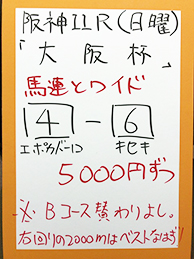 阪神11R(日曜)
「大阪杯」
馬連とワイド
4-6
エポカドーロ キセキ
5000円ずつ
※Bコース替わりよし。
右回りの2000mはベストなはず!